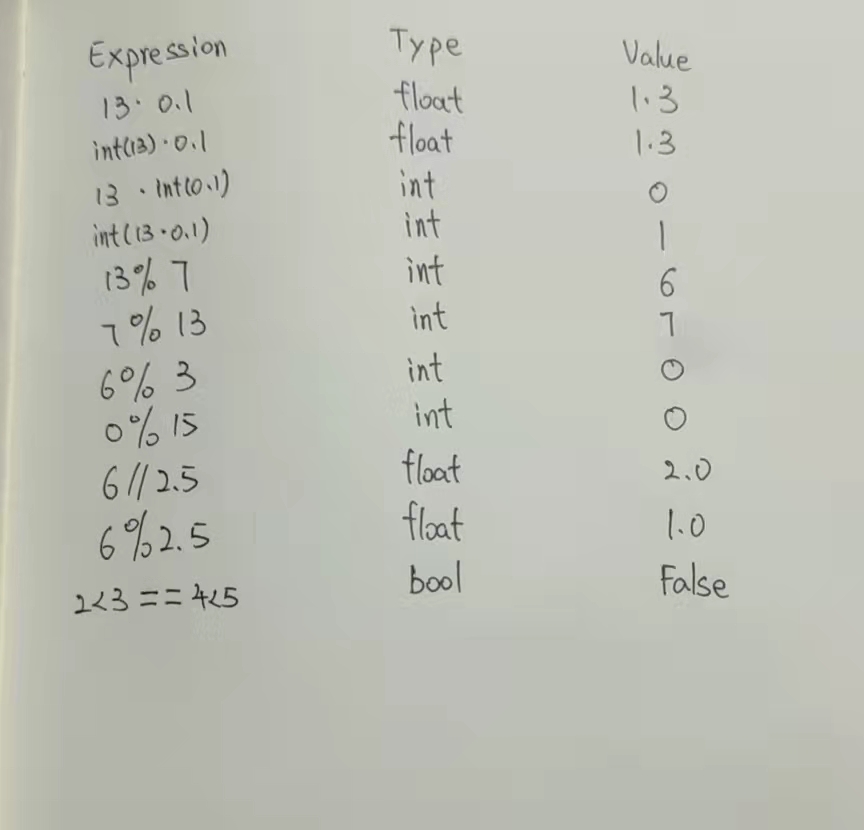 Expression Type Value
13 · 0.1 float 1.3
int(13) · 0.1 float 1.3
13 · int(0.1) int 0
int(13 · 0.1) int 1
13 % 7 int 6
7 % 13 int 7
6 % 3 int 0
0 % 15 int 0
6 // 2.5 float 2.0
6 % 2.5 float 1.0
2<3 == 4<5 bool False